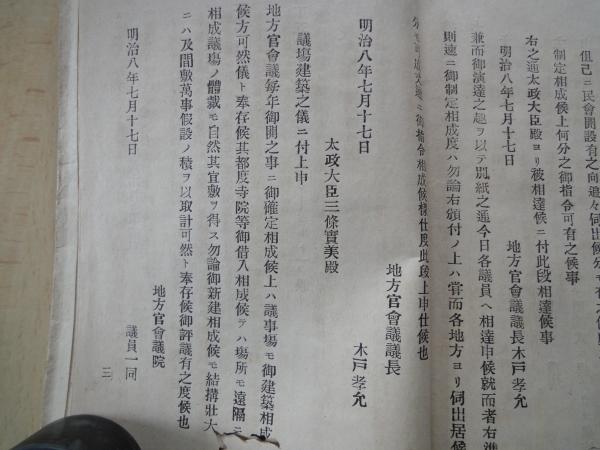 但已ニ民會開設有之向追々伺出候分モ有之候
制定相成候上何分之御指令可有之候事
右之通太政大臣殿ヨリ被相達候ニ付此段相達候事
明治八年七月十七日
地方官會議議長木戸孝允
兼而御演達之趣ヲ以テ別紙之通今日各議員ヘ相達申候就而者右準
則速ニ御制定相成度ハ勿論右頒付ノ上ハ甞而各地方ヨリ伺出居候
ニ御指令相成候樣仕度此段上申仕候也
地方官會議議長
木戸孝允
明治八年七月十七日
太政大臣三條實美殿
議塲建築之儀ニ付上申
地方官會議每年御開之事ニ御確定相成候上ハ議事塲モ御建築相成
候方可然儀ト奉存候其都度寺院等御借入相成候テハ塲所モ遠隔モ
相成議塲ノ體裁モ自然其宜敷ヲ得ス勿論御新建相成候モ結搆壯大
ニハ及間敷萬事假設ノ積ヲ以取計可然ト奉存候御評議有之度候也
地方官會議院
議員一同
明治八年七月十七日
三